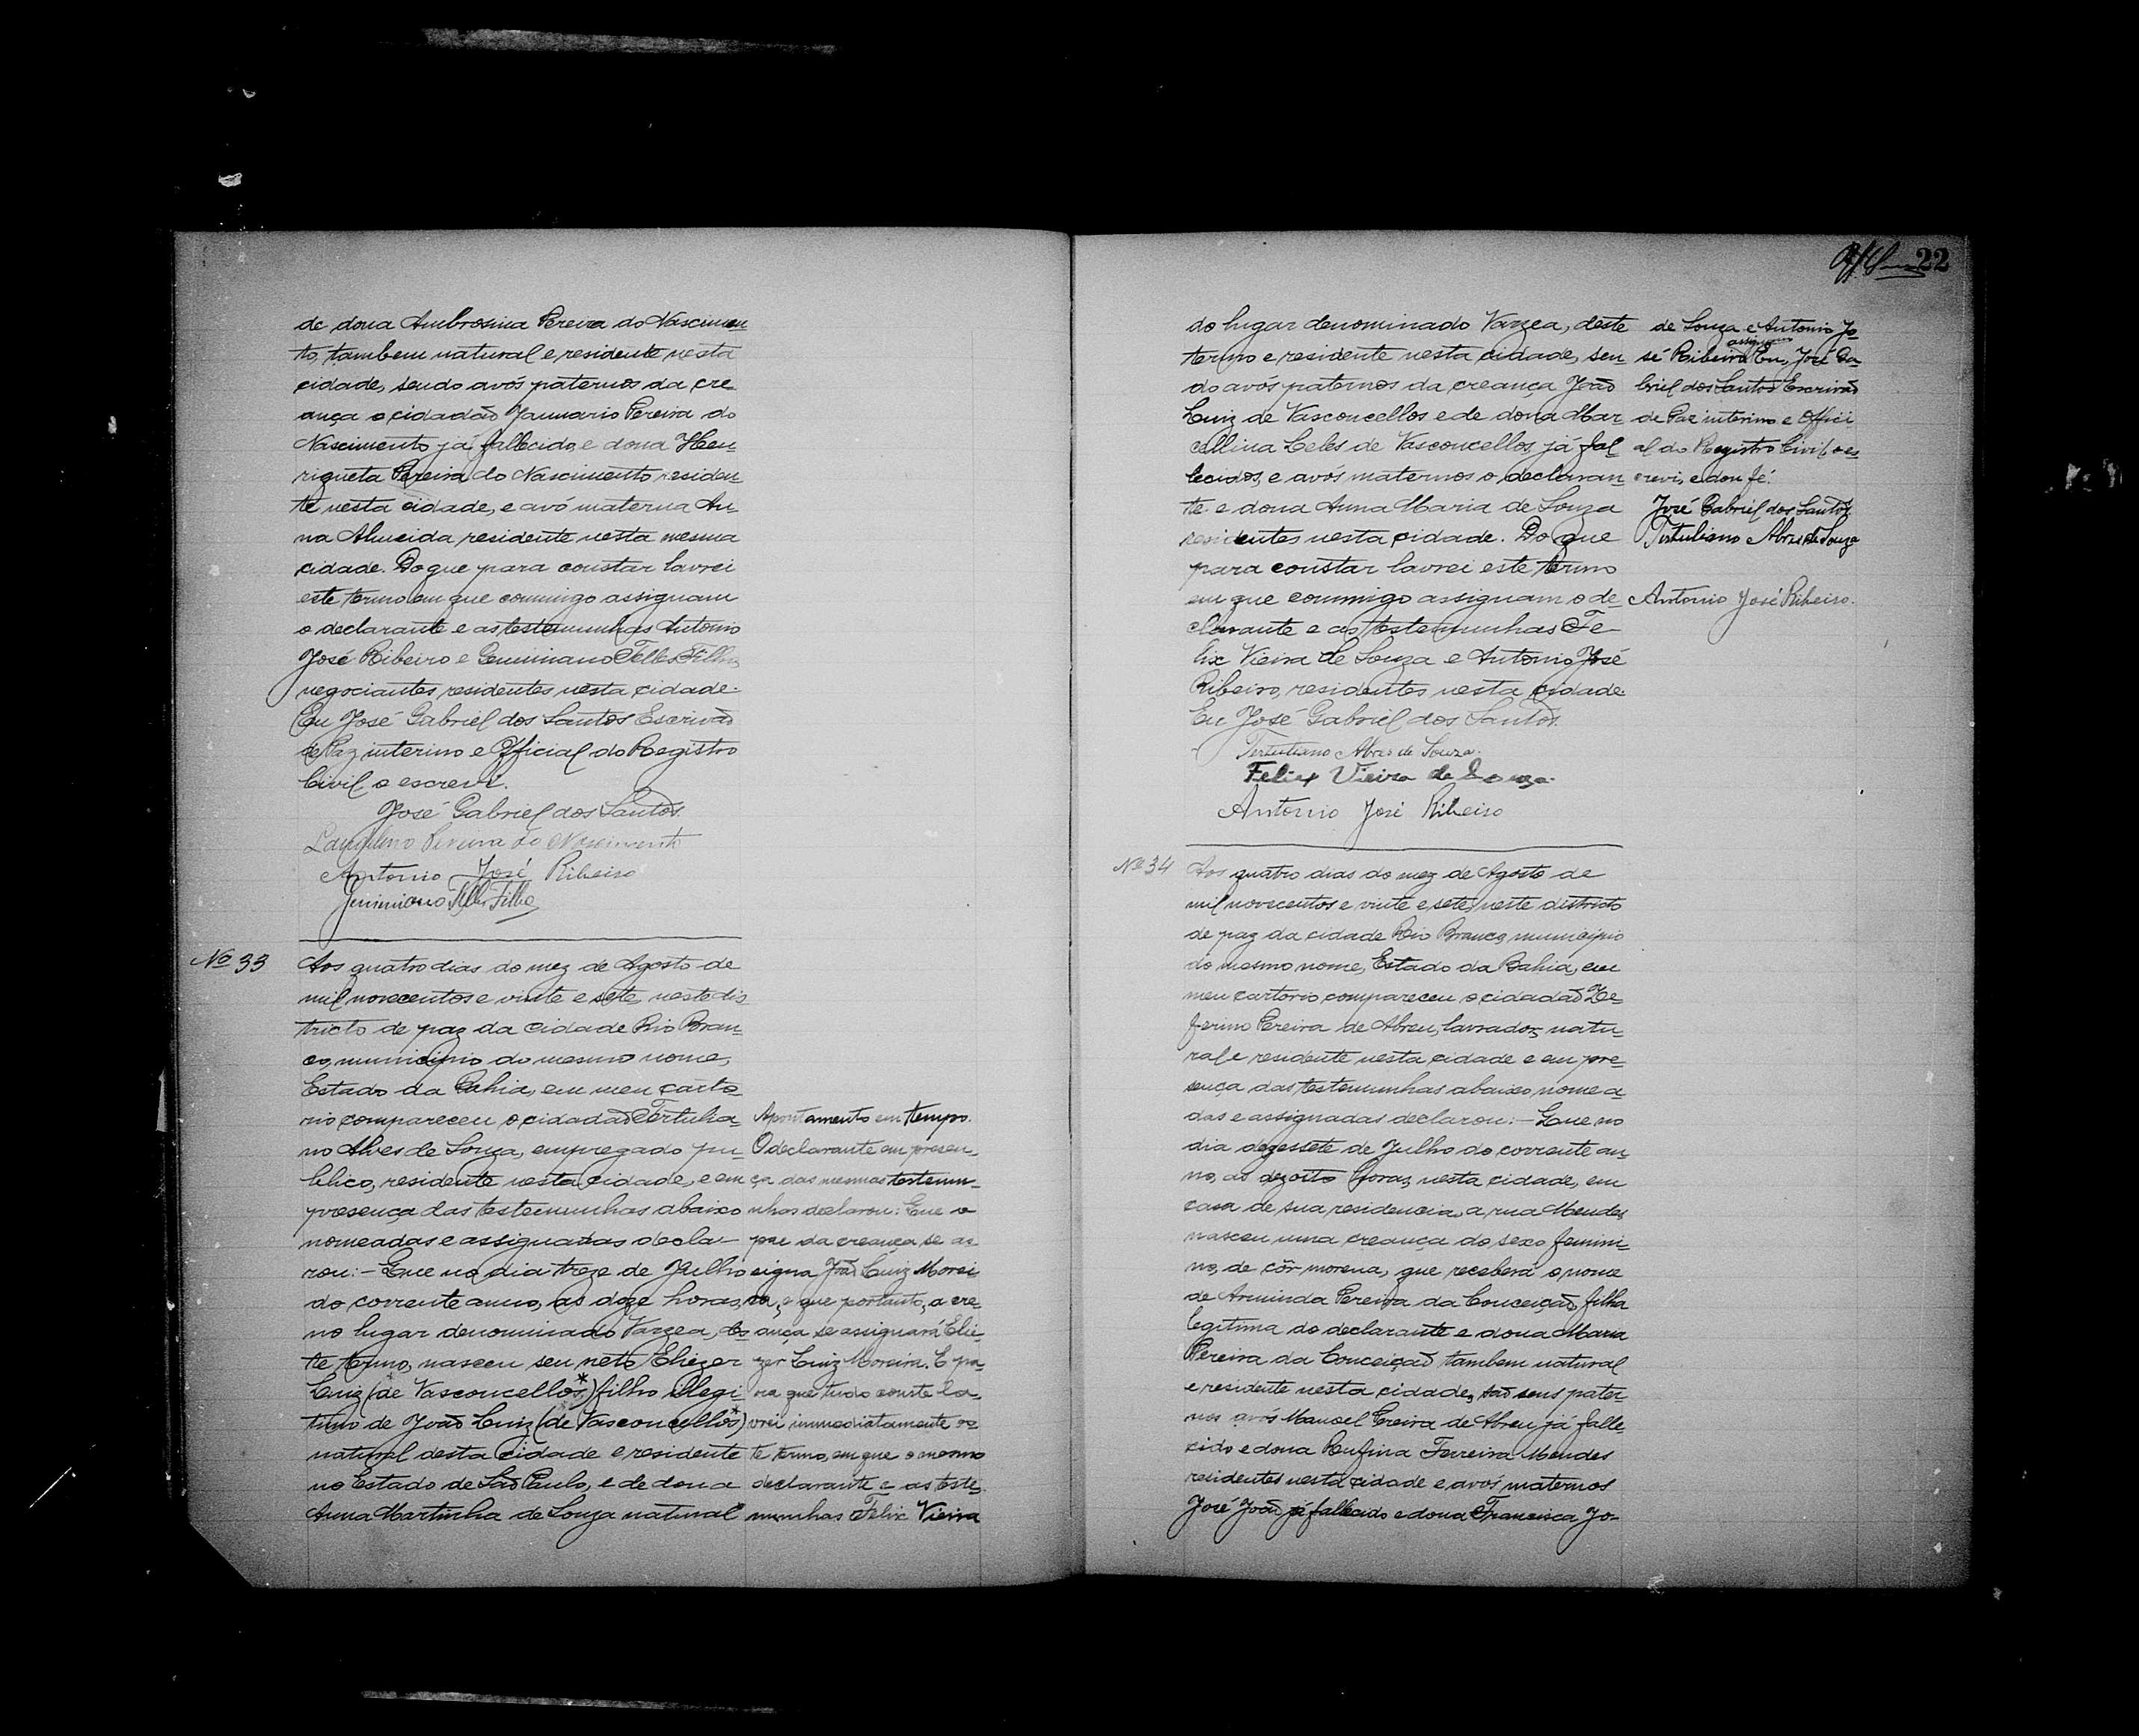 de dona Ambrosina Pereira do Nascimen
to, tambem natural e residente nesta
cidade, sendo avós paternos da cre
ança o cidadão Januario Pereira do
Nascimento já fallecido, e dona Hen-
riqueta Pereira do Nascimento residen-
te nesta cidade, e avó materna An-
na Almeida residente nesta mesma
cidade. Do que para constar lavrei
este termo em que commigo assignam
o declarante e as testemunhas Antonio
José Ribeiro e Geminiano Telles Filho
negociantes residentes nesta cidade.
Eu José Gabriel dos Santos Escrivão
de Paz interino e Official do Registro
Civil o escrevi.
José Gabriel dos Santos.
Pereira do Nascimento
Antonio José Ribeiro
Geminiano Telles Filho
Nº 33
Aos quatro dias do mez de Agosto de
mil novecentos e vinte e sete, neste dis
tricto de paz da cidade Rio Bran-
co, municipio do mesmo nome,
Estado da Bahia, em meu carto-
rio compareceu o cidadão Tertulia-
no Alves de Souza, empregado pu-
blico, residente nesta cidade, e em
presença das testemunhas abaixo
nomeadas e assignadas decla-
rou:- Que no dia treze de Julho
do corrente anno, as doze horas,
no lugar denominado Varzea, des-
te termo, nasceu seu neto Eliezer
Luiz (*de Vasconcellos*) filho illegi-
timo de João Luiz (de Vasconcellos*)
natural desta cidade e residente
no Estado de São Paulo, e de dona
Anna Martinha de Souza natural
Apontamento em tempo.
O declarante em presen-
ça das mesmas testemu-
nhas declarou: Que o
pae da creança se as
signa João Luiz Morei
ra, e que portanto, a cre-
ança se assignará Elie-
zer Luiz Moreira. E pa-
ra que tudo conste la-
vrei immediatamente es-
te termo, em que o mesmo
declarante e as teste-
munhas Felix Vieira
22
do lugar denominado Varzea, deste
termo e residente nesta cidade, sen-
do avós paternos da creança João
Luiz de Vasconcellos e de dona Mar-
cellina Leles de Vasconcellos, já fal-
lecidos, e avós maternos o declaran-
te e dona Anna Maria de Souza
residentes nesta cidade. Do que
para constar lavrei este termo
em que commigo assignam o de-
clarante e as testemunhas Fe-
lix Vieira de Souza e Antonio José
Ribeiro, residentes nesta cidade.
Eu José Gabriel dos Santos.
Tertuliano Alves de Souza.
Felix Vieira de Souza.
Antonio José Ribeiro
de Souza e Antonio Jo-
assignam
sé Ribeiro. Eu, José Ga-
briel dos Santos Escrivão
de Paz interino e Offici
al do Registro Civil o es-
crevi, e dou fé.
José Gabriel dos Santos.
Tertuliano Alves de Souza
Antonio José Ribeiro.
Nº 34
Aos quatro dias do mez de Agosto de
mil novecentos e vinte e sete, neste districto
de paz da cidade Rio Branco, municipio
do mesmo nome, Estado da Bahia, em
meu cartorio compareceu o cidadão Ze-
ferino Pereira de Abreu, lavrador, natu-
ral e residente nesta cidade e em pre-
sença das testemunhas abaixo nomea
das e assignadas declarou:- Que no
dia dezessete de Julho do corrente an-
no, as dezoito horas, nesta cidade, em
casa de sua residencia, a rua Mendes
nasceu uma creança do sexo femini-
no, de côr morena, que receberá o nome
de Arminda Pereira da Conceição, filha
legitima do declarante e dona Maria
Pereira da Conceição tambem natural
e residente nesta cidade, são seus pater-
nos avós Manoel Pereira de Abreu já falle
cido e dona Rufina Ferreira Mendes
residentes nesta cidade e avós maternos
José João já fallecido e dona Francisca Jo-